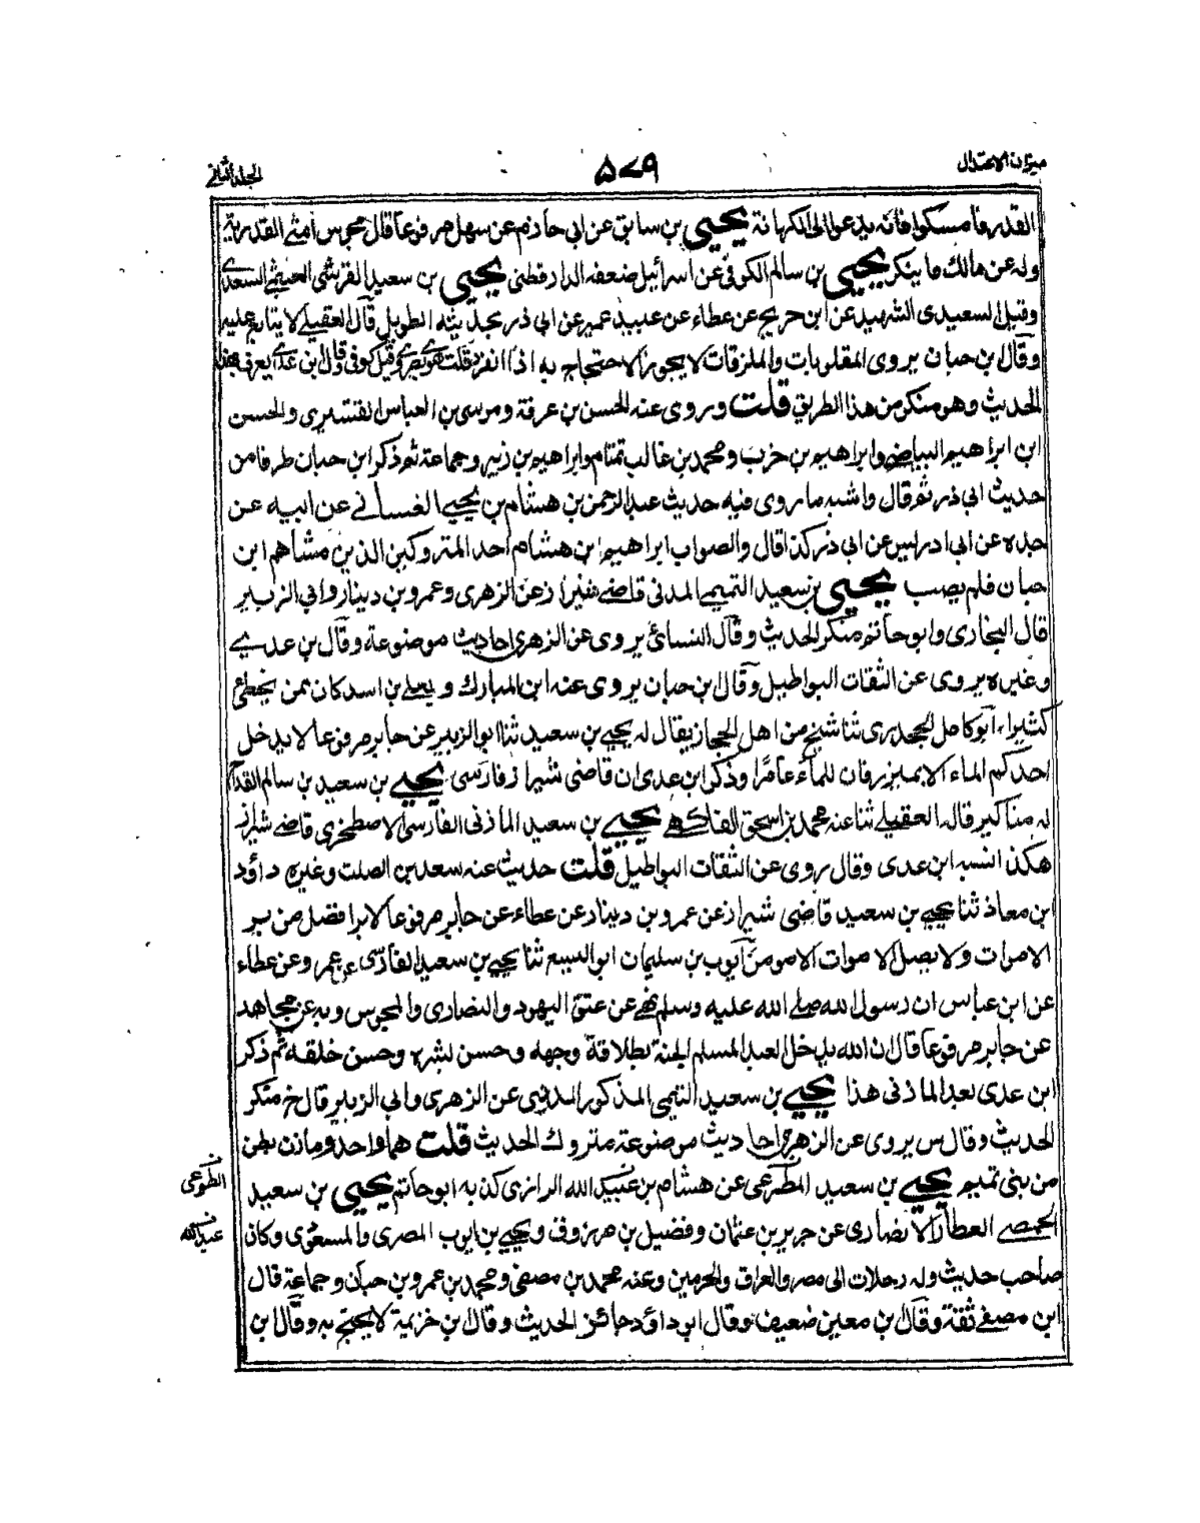 ميزان الاعتدال
۵۷۹
الجلد الثاني
القدر فامسكوا فانه يدعوا الى الكهانة يحيى بن سابق عن ابي حازم عن سهل مرفوعا قال مجوس امتي القدرية
وله عن مالك ما ينكر يحيى بن سالم الكوفي عن اسرائيل ضعفه الدارقطني يحيى بن سعيد القرشي العبشمي السعدي
وقيل السعيدي الشهيد عن ابن جريج عن عطاء عن عبيد بن عمير عن ابي ذر بحديثه الطويل قال العقيلي لا يتابع عليه
وقال بن حبان يروى المقلوبات والملزقات لا يجوز الاحتجاج به اذا انفرد قلت هو بصرى وقيل كوفى قال ابن عدى يعرف بهذا
الحديث وهو منكر من هذا الطريق قلت وروى عنه الحسن بن عرفة وموسى بن العباس التسترى والحسن
ابن ابراهيم البياضى وابراهيم بن حرب ومحمد بن غالب تمتام وابراهيم بن زبير وجماعة ثم ذكر ابن حبان طرفا من
حديث ابى ذر ثم قال واشبه ما روى فيه حديث عبد الرحمن بن هشام بن يحيى الغسانى عن ابيه عن
جده عن ابى ادريس عن ابى ذر كذا قال والصواب ابراهيم بن هشام احد المتروكين الذين مشاهم ابن
حبان فلم يصب يحيى بن سعيد التميمى المدنى قاضى شيراز عن الزهرى وعمرو بن دينار وابي الزبير
قال البخارى وابو حاتم منكر الحديث وقال النسائ يروى عن الزهرى احاديث موضوعة وقال بن عدى
وغيره يروى عن الثقات البواطيل وقال بن حبان يروى عنه ابن المبارك ويعلى بن اسد كان ممن يخطئ
كثيرا، ابو كامل الجحدرى ثنا شيخ من اهل الحجاز يقال له يحيى بن سعيد ثنا ابو الزبير عن جابر مرفوعا لا يدخل
احدكم الماء الا بميزر فان للماء عامرا وذكر ابن عدى ان قاضى شيراز فارسى يحيى بن سعيد بن سالم القداح
له مناكير قاله العقيلى ثنا عنه محمد بن اسحق الفاكهى يحيى بن سعيد المازنى الفارسى الاصطخرى قاضى شيراز
هكذا نسبه ابن عدى وقال روى عن الثقات البواطيل قلت حديث عنه سعد بن الصلت وغيره داؤد
ابن معاذ ثنا يحيى بن سعيد قاضى شيراز عن عمرو بن دينار عن عطاء عن جابر مرفوعا لا برا فضل من بر
الاموات ولا يصل الاموات الا مومن ايوب بن سليمان ابو اليسع ثنا يحيى بن سعيد الفارسى عن عمرو عن عطاء
عن ابن عباس ان رسول الله صلى الله عليه وسلم نهى عن عتق اليهود والنصارى والمجوس وبه عن مجاهد
عن جابر مرفوعا قال ان الله يدخل العبد المسلم الجنة بطلاقة وجهه وحسن بشره وحسن خلقه ثم ذكر
ابن عدى بعد المازنى هذا يحيى بن سعيد التيمى المذكور المدنى عن الزهرى وابي الزبير قال خ منكر
الحديث وقال س يروى عن الزهرى احاديث موضوعة متروك الحديث قلت هما واحد ومازن بطن
من بنى تميم يحيى بن سعيد المطوعى عن هشام بن عبيد الله الرازى كذبه ابو حاتم يحيى بن سعيد
المطوعى
الحمصى العطار الانصارى عن حريز بن عثمان وفضيل بن مرزوق ويحيى بن ايوب المصرى والمسعودى وكان
عبيد الله
صاحب حديث وله رحلات الى مصر والعراق والحرمين وعنه محمد بن مصفى ومحمد بن عمرو بن حبان وجماعة قال
ابن مصفى ثقة وقال بن معين ضعيف وقال ابو داؤد جائز الحديث وقال بن خزيمة لا يحتج به وقال ابن